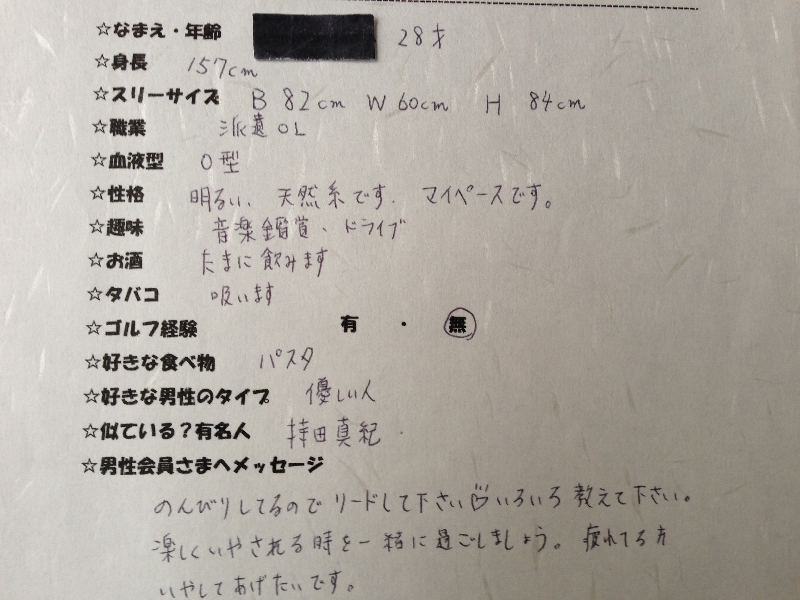 ☆なまえ・年齢 28才
☆身長 157cm
☆スリーサイズ B 82cm W 60cm H 84cm
☆職業 派遣OL
☆血液型 O型
☆性格 明るい、天然系です。マイペースです。
☆趣味 音楽鑑賞、ドライブ
☆お酒 たまに飲みます
☆タバコ 吸います
☆ゴルフ経験 有 ・ 無
☆好きな食べ物 パスタ
☆好きな男性のタイプ 優しい人
☆似ている？有名人 持田真紀
☆男性会員さまへメッセージ
のんびりしてるのでリードして下さい♡いろいろ教えて下さい。
楽しくいやされる時を一緒に過ごしましょう。疲れてる方
いやしてあげたいです。